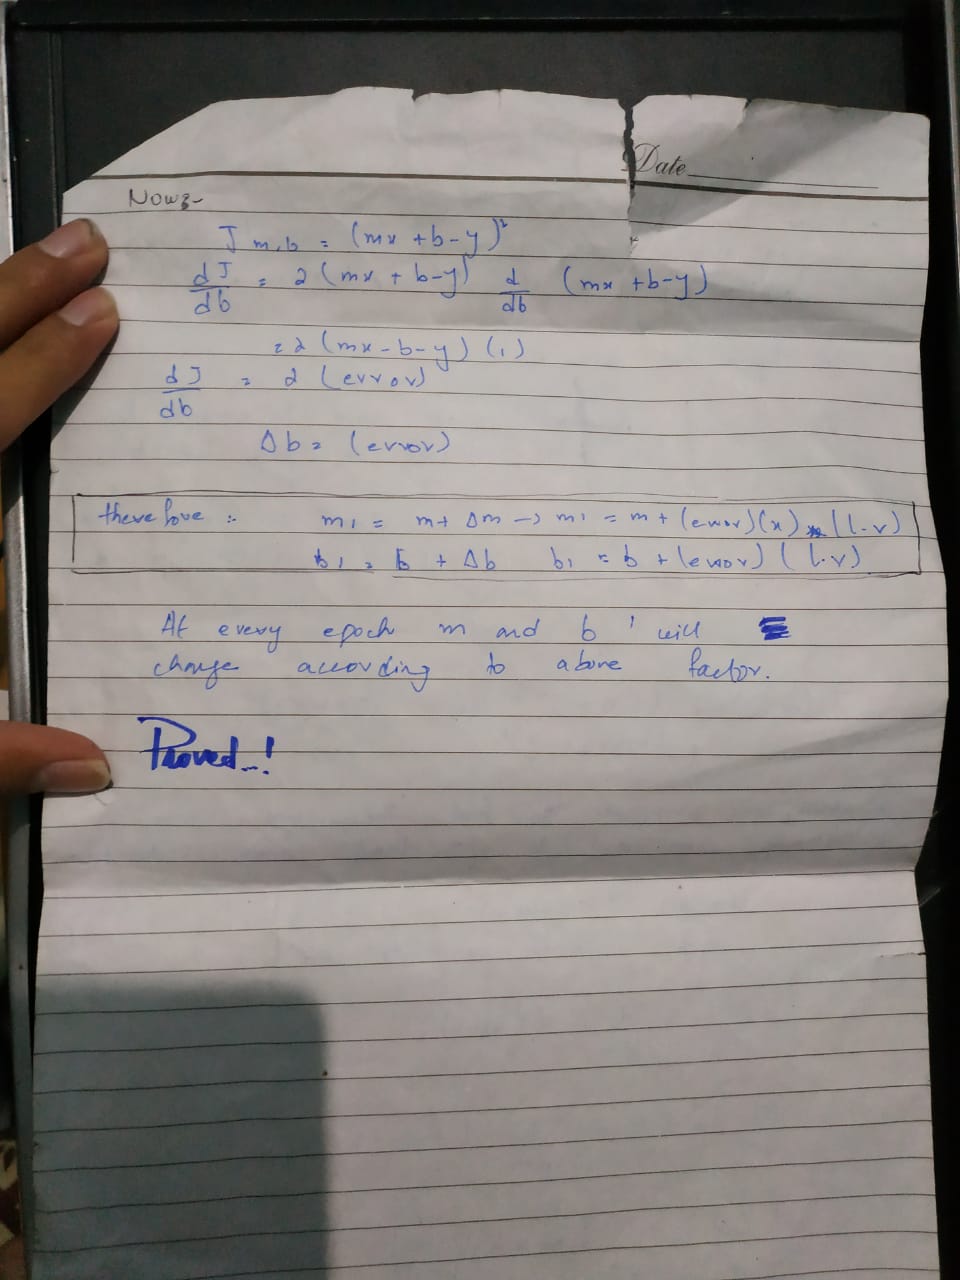 Date
Now:-
J m,b = (mx + b - y)²
dJ/db = 2 (mx + b - y) d/db (mx + b - y)
= 2 (mx - b - y) (1)
dJ/db = 2 (error)
Δb = (error)
therefore :- m1 = m + Δm → m1 = m + (error)(x) (l.r)
b1 = b + Δb b1 = b + (error) (l.r)
At every epoch m and b will
change according to above factor.
Proved..!